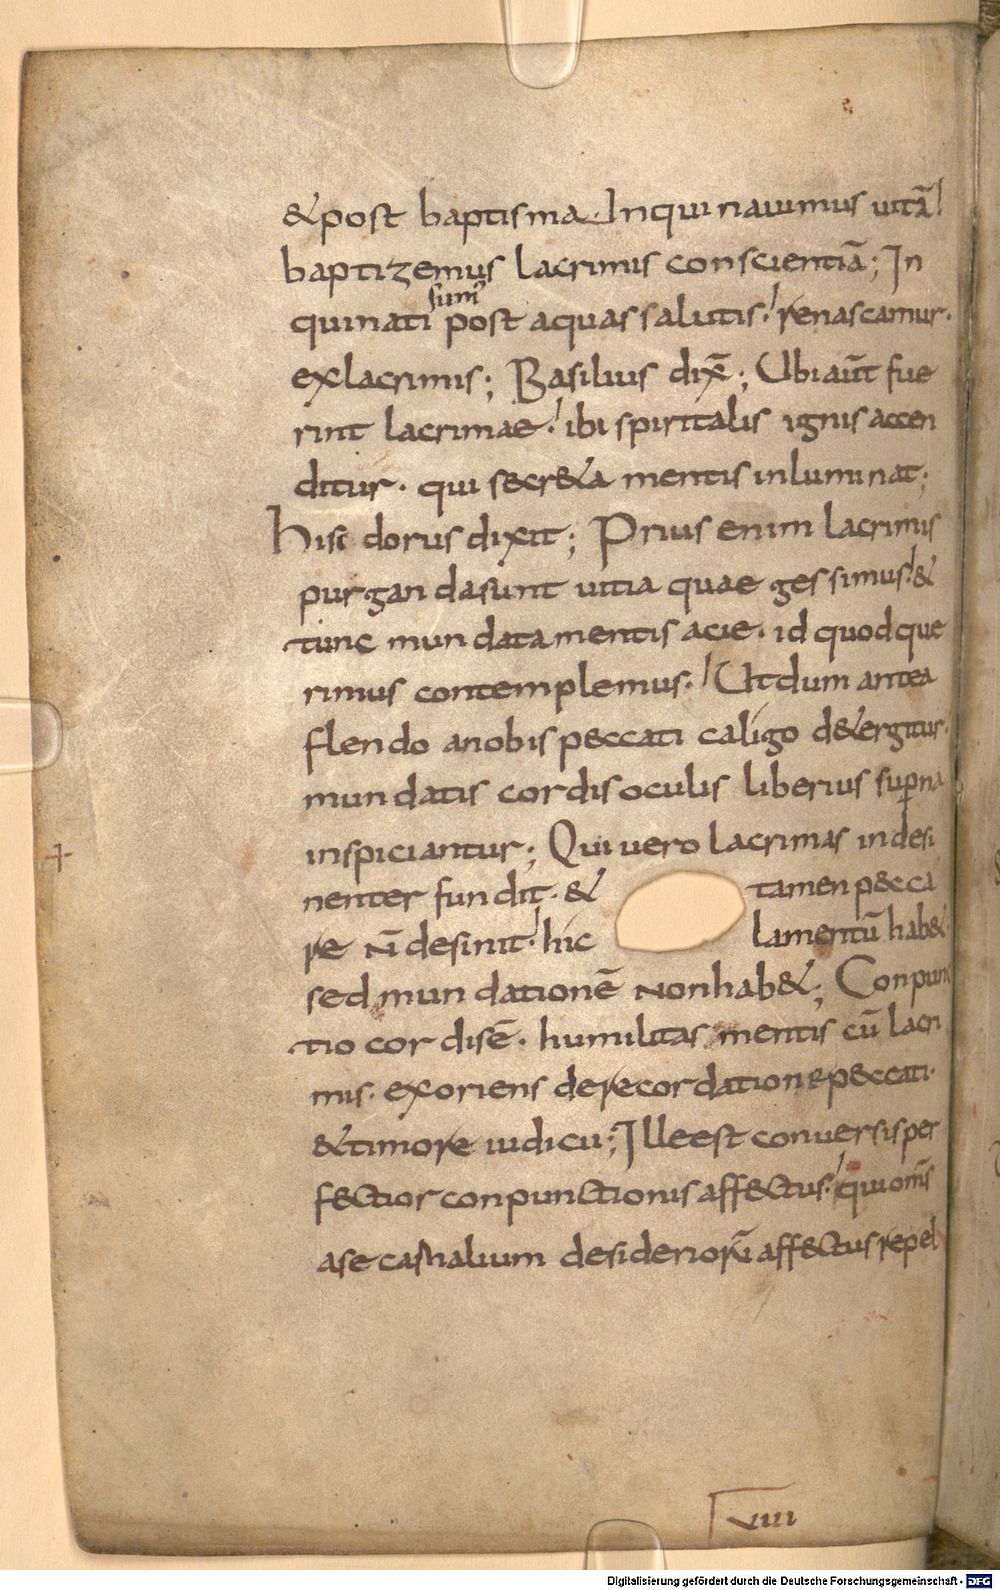 & post baptisma. Inquinauimus uitā!
baptizemus lacrimis conscientiā; In
sum̄
quinati post aquas salutis! renascamur.
ex lacrimis; Basilius dix̄; Ubi aūt fue
rint lacrimae! ibi spiritalis ignis accen
ditur. qui secr&a mentis inluminat;
hisidorus dixit; Prius enim lacrimis
purganda sunt uitia quae gessimus! &
tunc mundata mentis acie. id quod que
rimus contemplemus.! Ut dum antea
flendo a nobis peccati caligo d&ergitur!
mundatis cordis oculis liberius sup̄na
inspiciantur; Qui uero lacrimas indesi
nenter fundit. & tamen pecca
re n̄ desinit! hic lamentū hab&
sed mundationē non hab&; Conpunc
tio cordis ē. humilitas mentis cū lacri
mis. exoriens de recordatione peccati.
& timore iudicii; Ille est conuersis per
fectior conpunctionis affectus.! qui om̄s
a se carnalium desideriorū affectus repel
V̅IIII
Digitalisierung gefördert durch die Deutsche Forschungsgemeinschaft - DFG